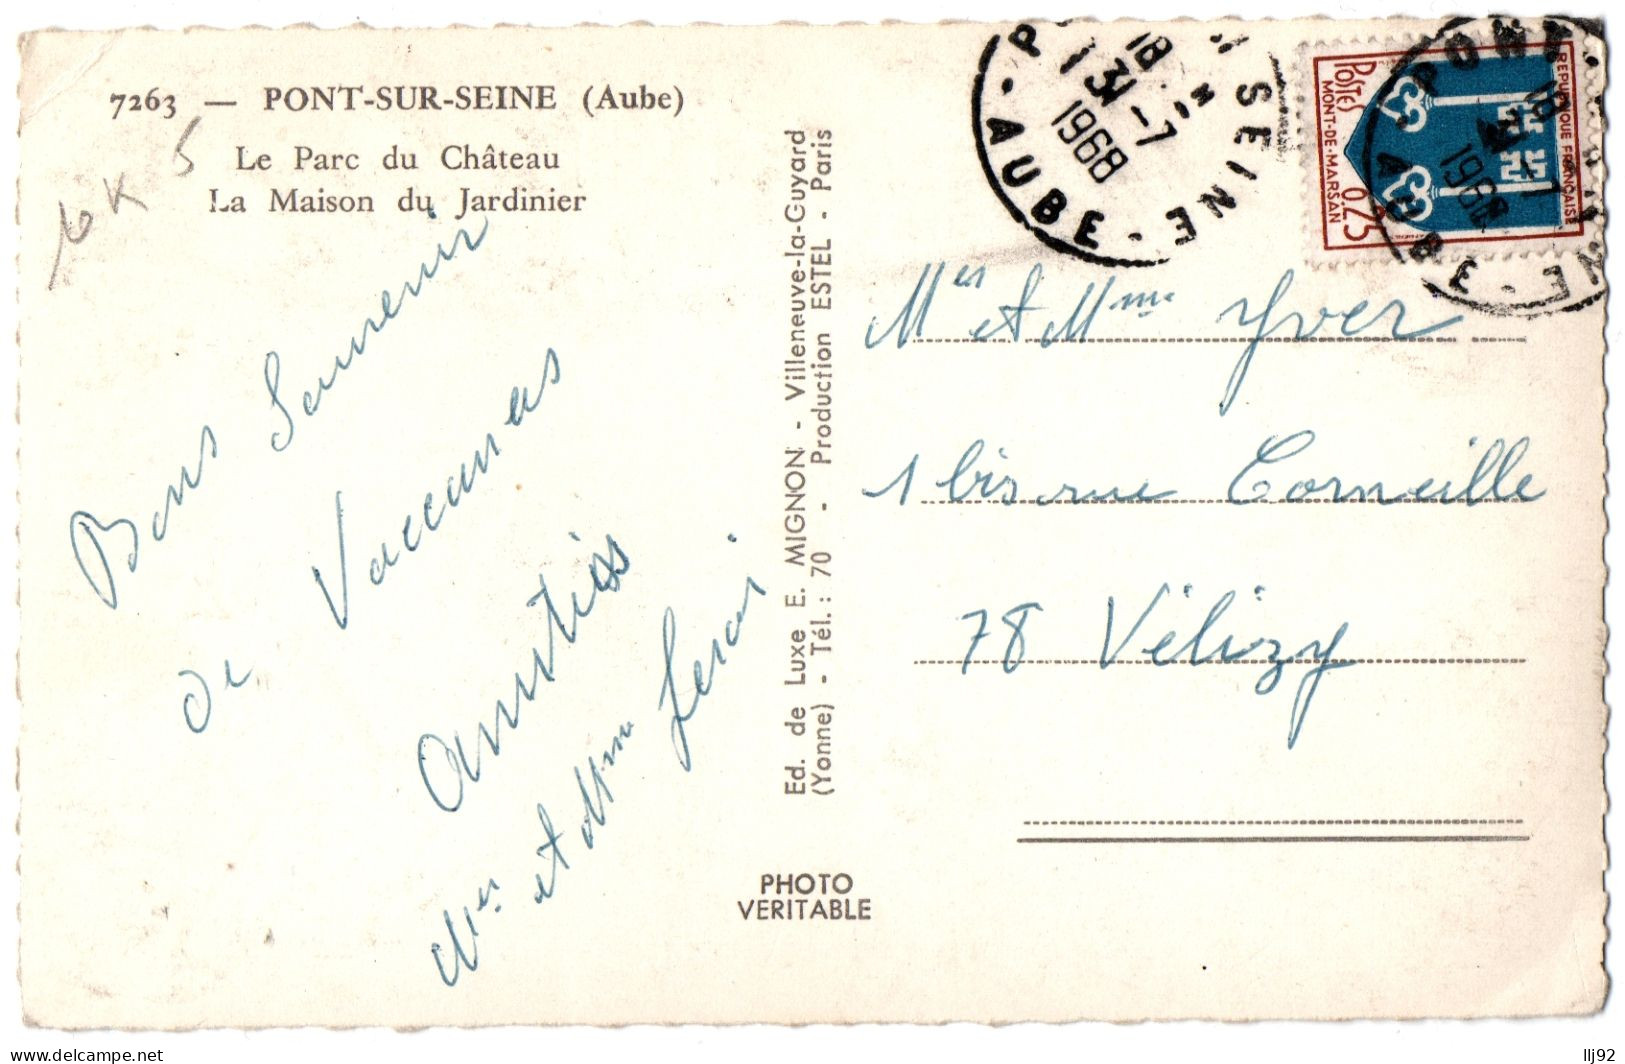 7263 — PONT-SUR-SEINE (Aube)
Le Parc du Château
La Maison du Jardinier
Bons Souvenir
de Vaccances
amitiés
Mer et Mme
Ed. de Luxe E. MIGNON - Villeneuve-la-Guyard
(Yonne) - Tél. : 70 - Production ESTEL - Paris
PHOTO
VERITABLE
SEINE
18 H
31-7
1968
- AUBE -
REPUBLIQUE FRANÇAISE
POSTES
0.25
MONT-DE-MARSAN
PONT
18
1968
AUBE -
Mer et Mme Yver
1 bis rue Corneille
78 Vélizy
delcampe.net
llj92